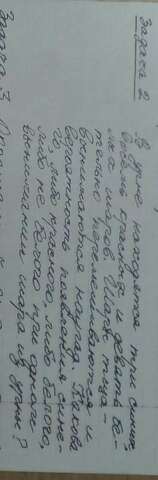 Задача 2
В урне находятся три синих,
восемь красных и девять бе-
лых шаров. Шары тща-
тельно перемешиваются и
вынимаются наугад. Какова
вероятность появления сине-
го, либо красного, либо белого,
либо не белого при одном
вынимании шара из урны?
Задача 3.